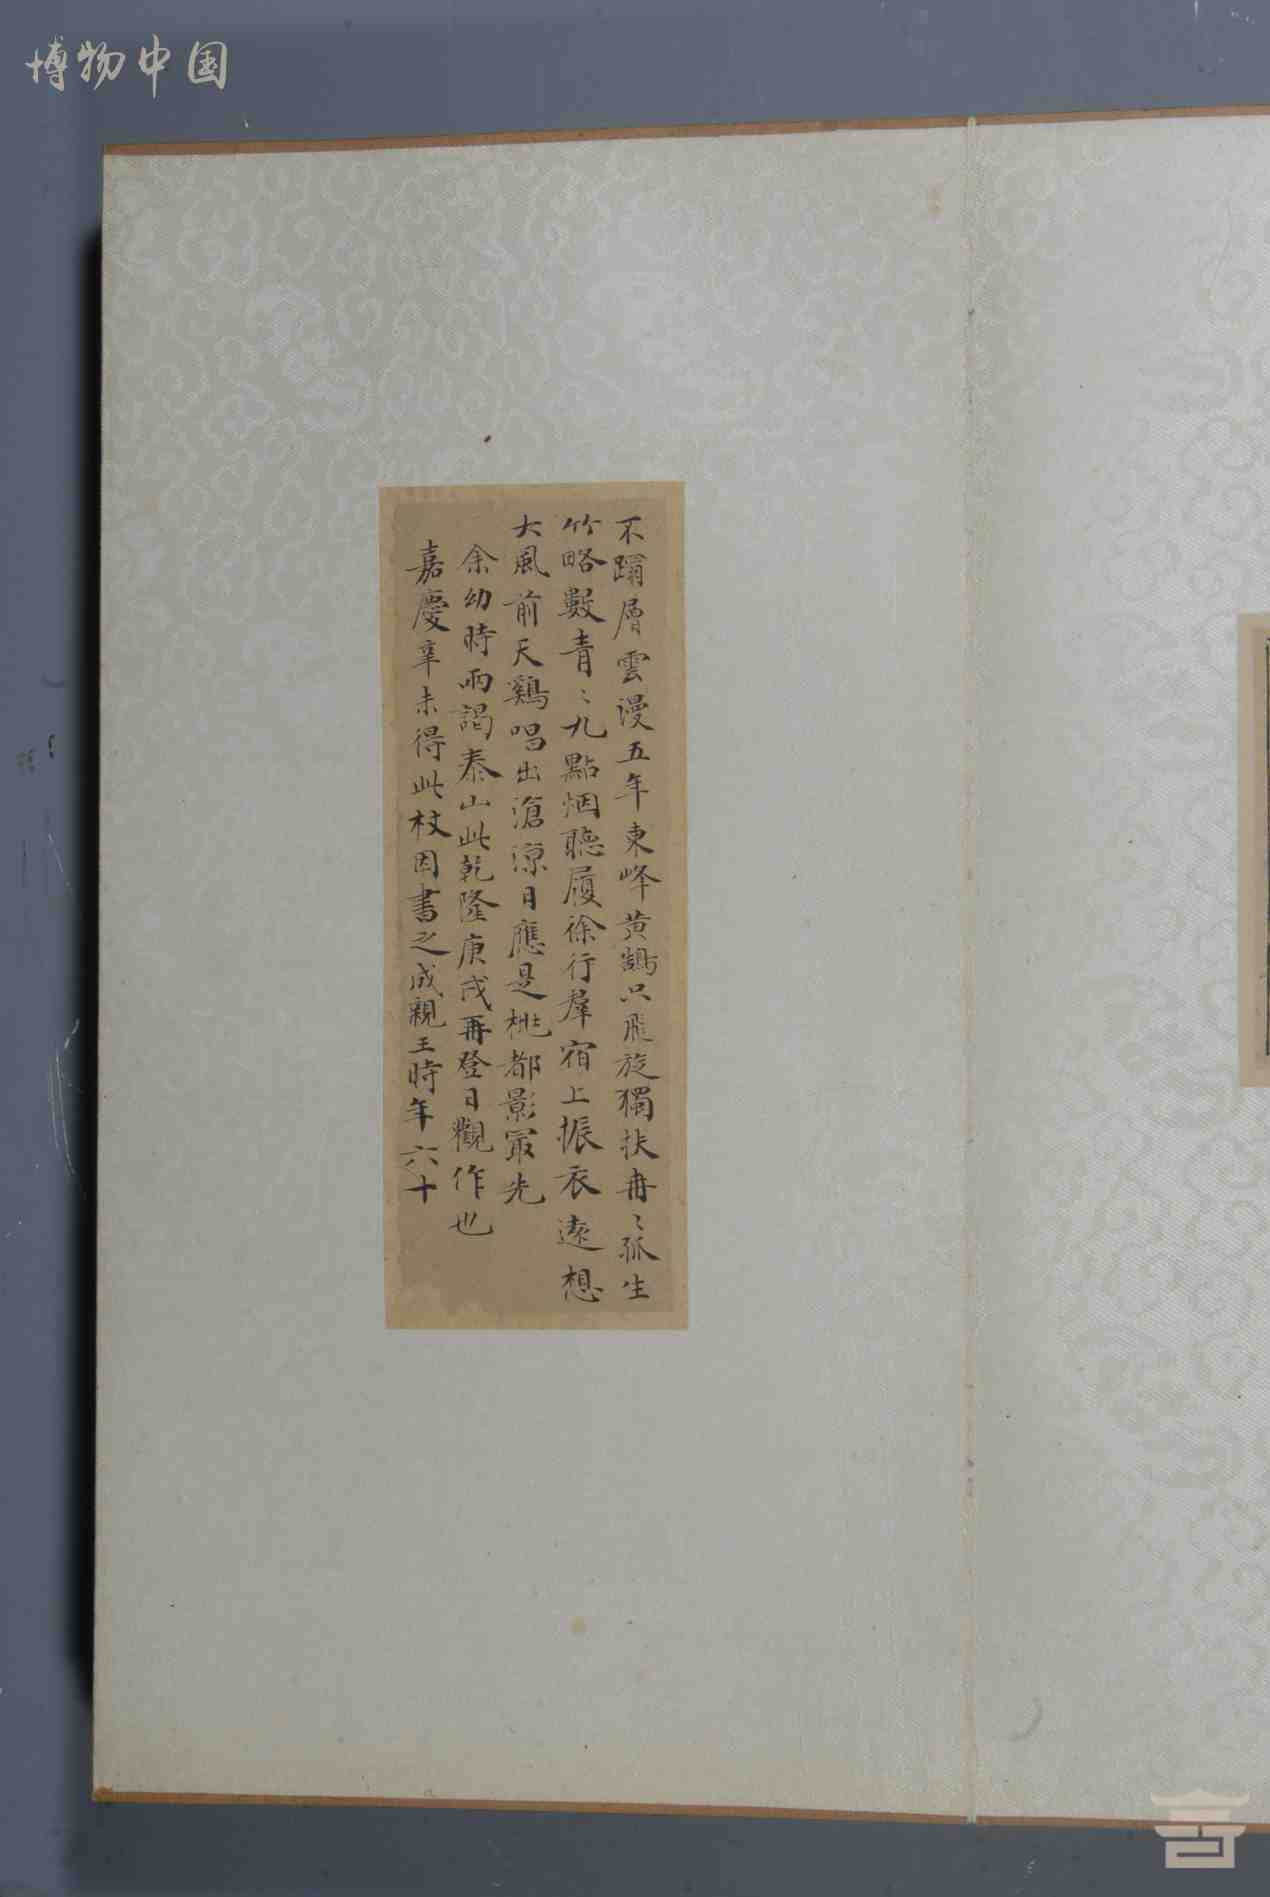 博物中国
不躡層雲漫五年東峰黄鵠只飛旋獨扶冉〻孤生
竹略數青〻九點烟聽履徐行羣宿上振衣遠想
大風前天鷄唱出滄涼日應是桃都影最先
余幼時兩謁泰山此乾隆庚戌再登日觀作也
嘉慶辛未得此杖因書之成親王時年六十